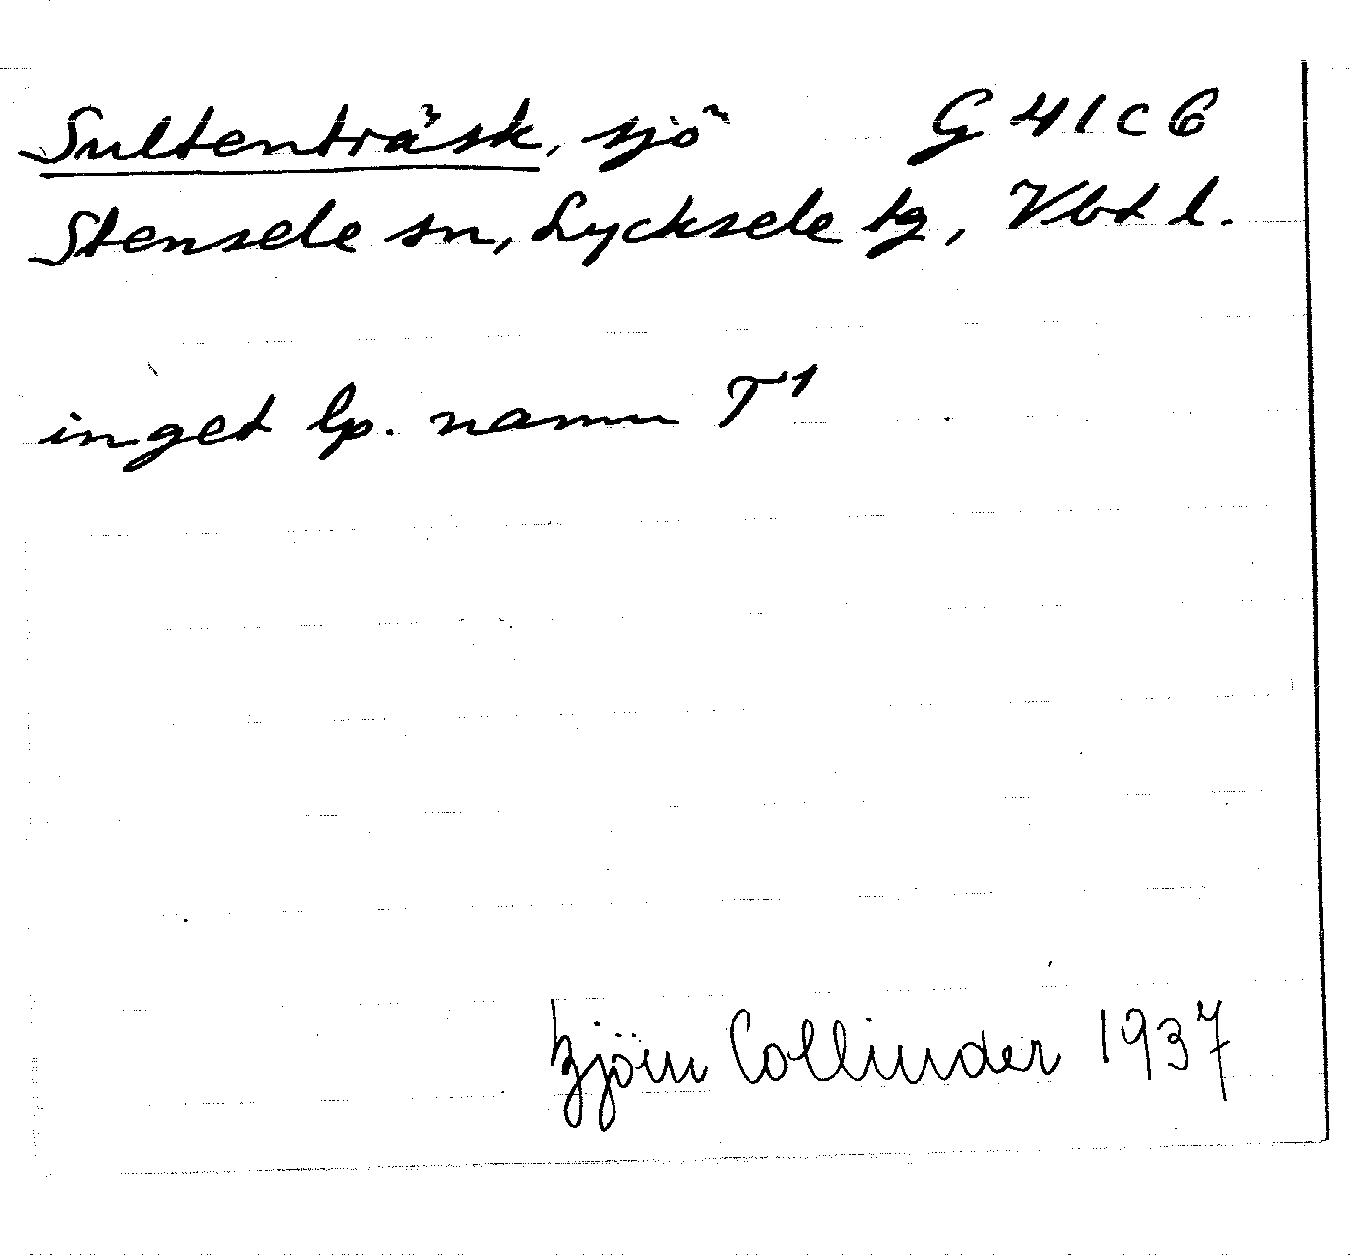 Sultenträsk, sjö G 41 c 6
Stensele sn, Lycksele tg, Vbtl.
inget lp. namn T¹
Björn Collinder 1937